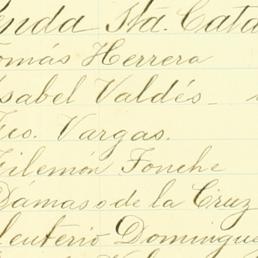 enda Sta. Cata
Tomás Herrera
Isabel Valdés -
Fco. Vargas.
Filemón Fonche
Dámaso de la Cruz
leuterio Domingue